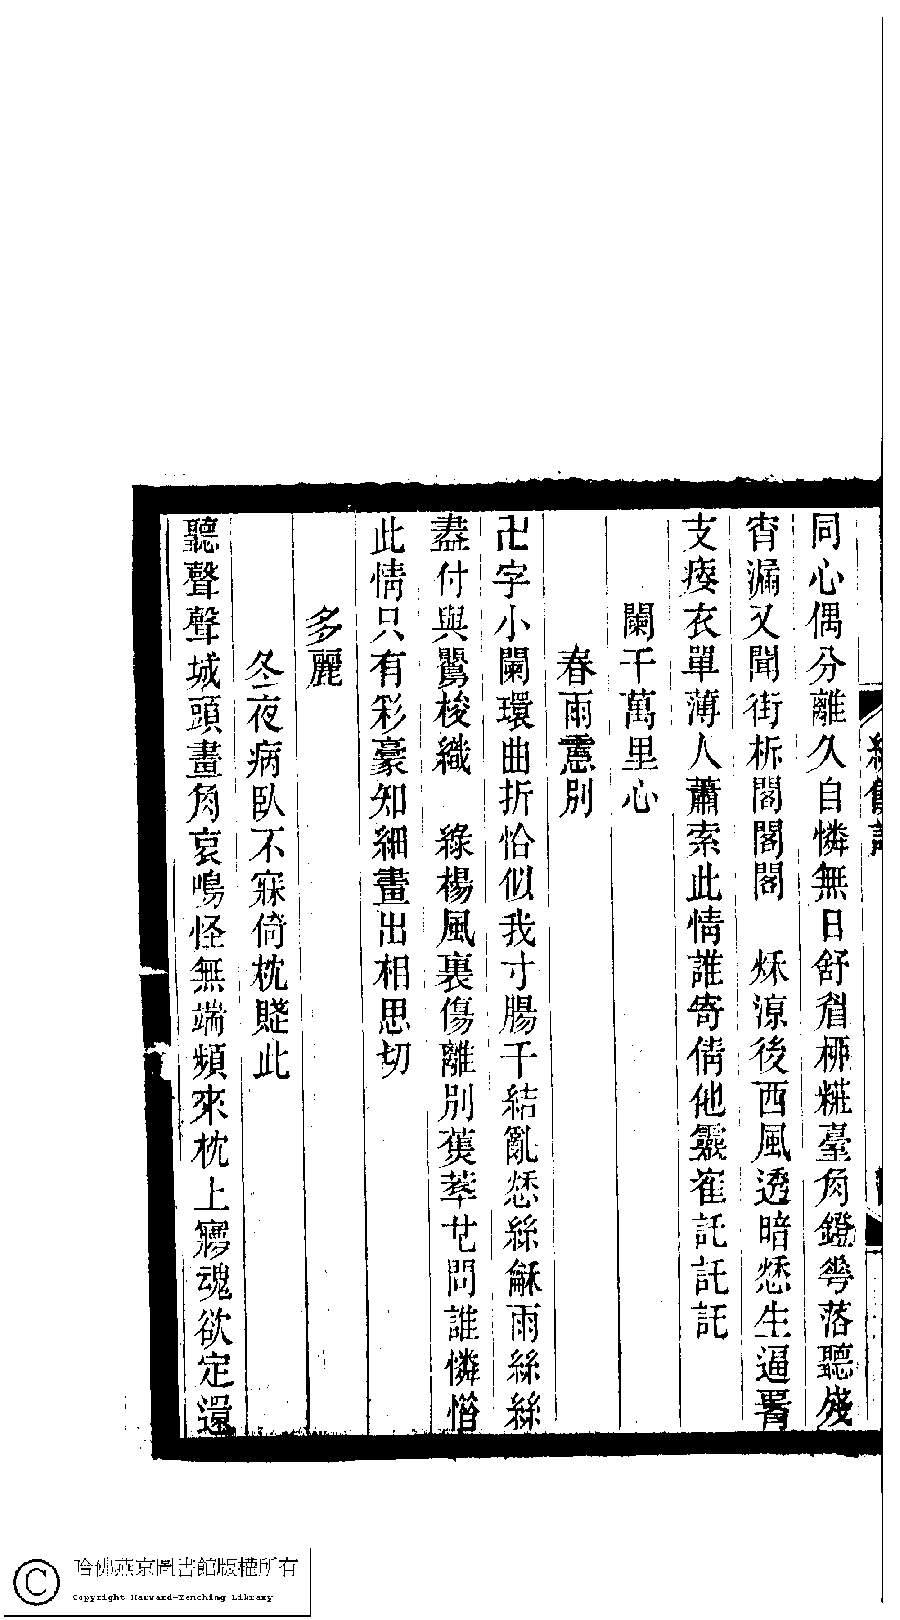 同心偶分離久自憐無日舒眉桺糚臺角鐙夸落聽殘
宵漏又聞街柝閣閣閣　秌涼後西風透暗愁生逼署
支痿衣單薄人蕭索此情誰寄倩他靈隺託託託
闌干萬里心
春雨惪別
卍字小闌環曲折恰似我寸腸千結亂愁絲龢雨絲絲
盡付與鸎梭織　綠楊風裏傷離別蕉萃𠧟問誰憐惜
此情只有彩豪知細畫出相思切
多麗
冬夜病臥不寐倚枕賤此
聽聲聲城頭畫角哀鳴怪無端頻來枕上寱魂欲定還
哈佛燕京圖書館版權所有
Copyright Harvard-Yenching Library